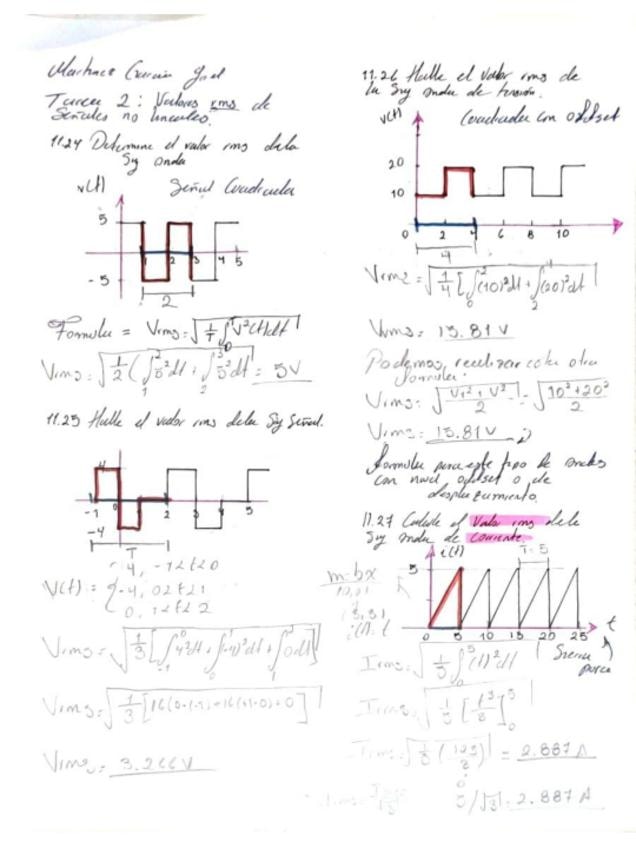 Tarea 2: Valores rms de
Señales no lineales.
11.24 Determine el valor rms dela
Sg onda
v(t) Señal Cuadrada
5
1 2 3 4 5
-5
2
Formula = Vrms = √1/T ∫ V²(t)dt
Vrms = √1/2 (∫ 5² dt + ∫ 5² dt = 5V
11.25 Halle el valor rms dela Sg Señal.
4
-1 0 2 3 4 5
-4
T
V(t) = { 4, -1<t<0
-4, 0<t<1
0, 1<t<2
Vrms = √1/3 [∫ 4² dt + ∫ (-4)² dt + ∫ 0 dt]
Vrms = √1/3 [16(0-(-1))+16(1-0)+0]
Vrms = 3.266V
11.26 Halle el valor rms de
la Sg onda de tensión.
v(t) Cuadrada con offset
20
10
0 2 4 6 8 10
4
Vrms = √1/4 [∫ (10)² dt + ∫ (20)² dt
Vrms = 15.81 V
Podemos realizar con otra
formula:
Vrms = √V1² + V²/2 = √10²+20²/2
Vrms = 15.81 V
formula para este tipo de ondas
con nivel offset o de
desplazamiento
11.27 Calcule el valor rms dela
Sg onda de corriente.
i(t) T=5
5
0 5 10 15 20 25 t
(5,5)
i(t)=t
Irms = √1/5 ∫ (t)² dt
Irms = √1/5 [t³/3]
Irms = √1/5 (125/3) = 2.887 A
5/√3 = 2.887 A